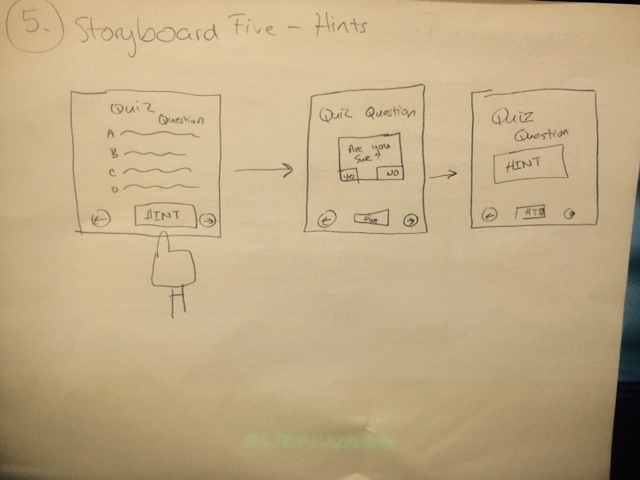 5. Storyboard Five - Hints
Quiz
Question
A
B
C
D
HINT
Quiz Question
Are you
sure?
NO
Quiz
Question
HINT
ALIENWARE